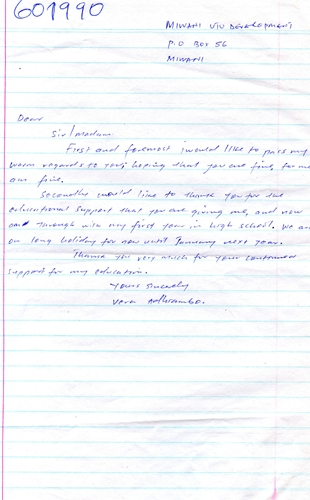 601990
MIWANI VIU DEVELOPMENT
P.O BOX 56
MIWANI
Dear
Sir/madam.
First and foremost i would like to pass my
warm regards to you, hoping that you are fine, for me
am fine.
Secondly would like to thank you for the
educational support that you are giving me, and now
am through with my first year in high school. We are
on long holiday for now until January next year.
Thank you very much for your continued
support for my education.
Yours sincerely
Vera Adhiambo.